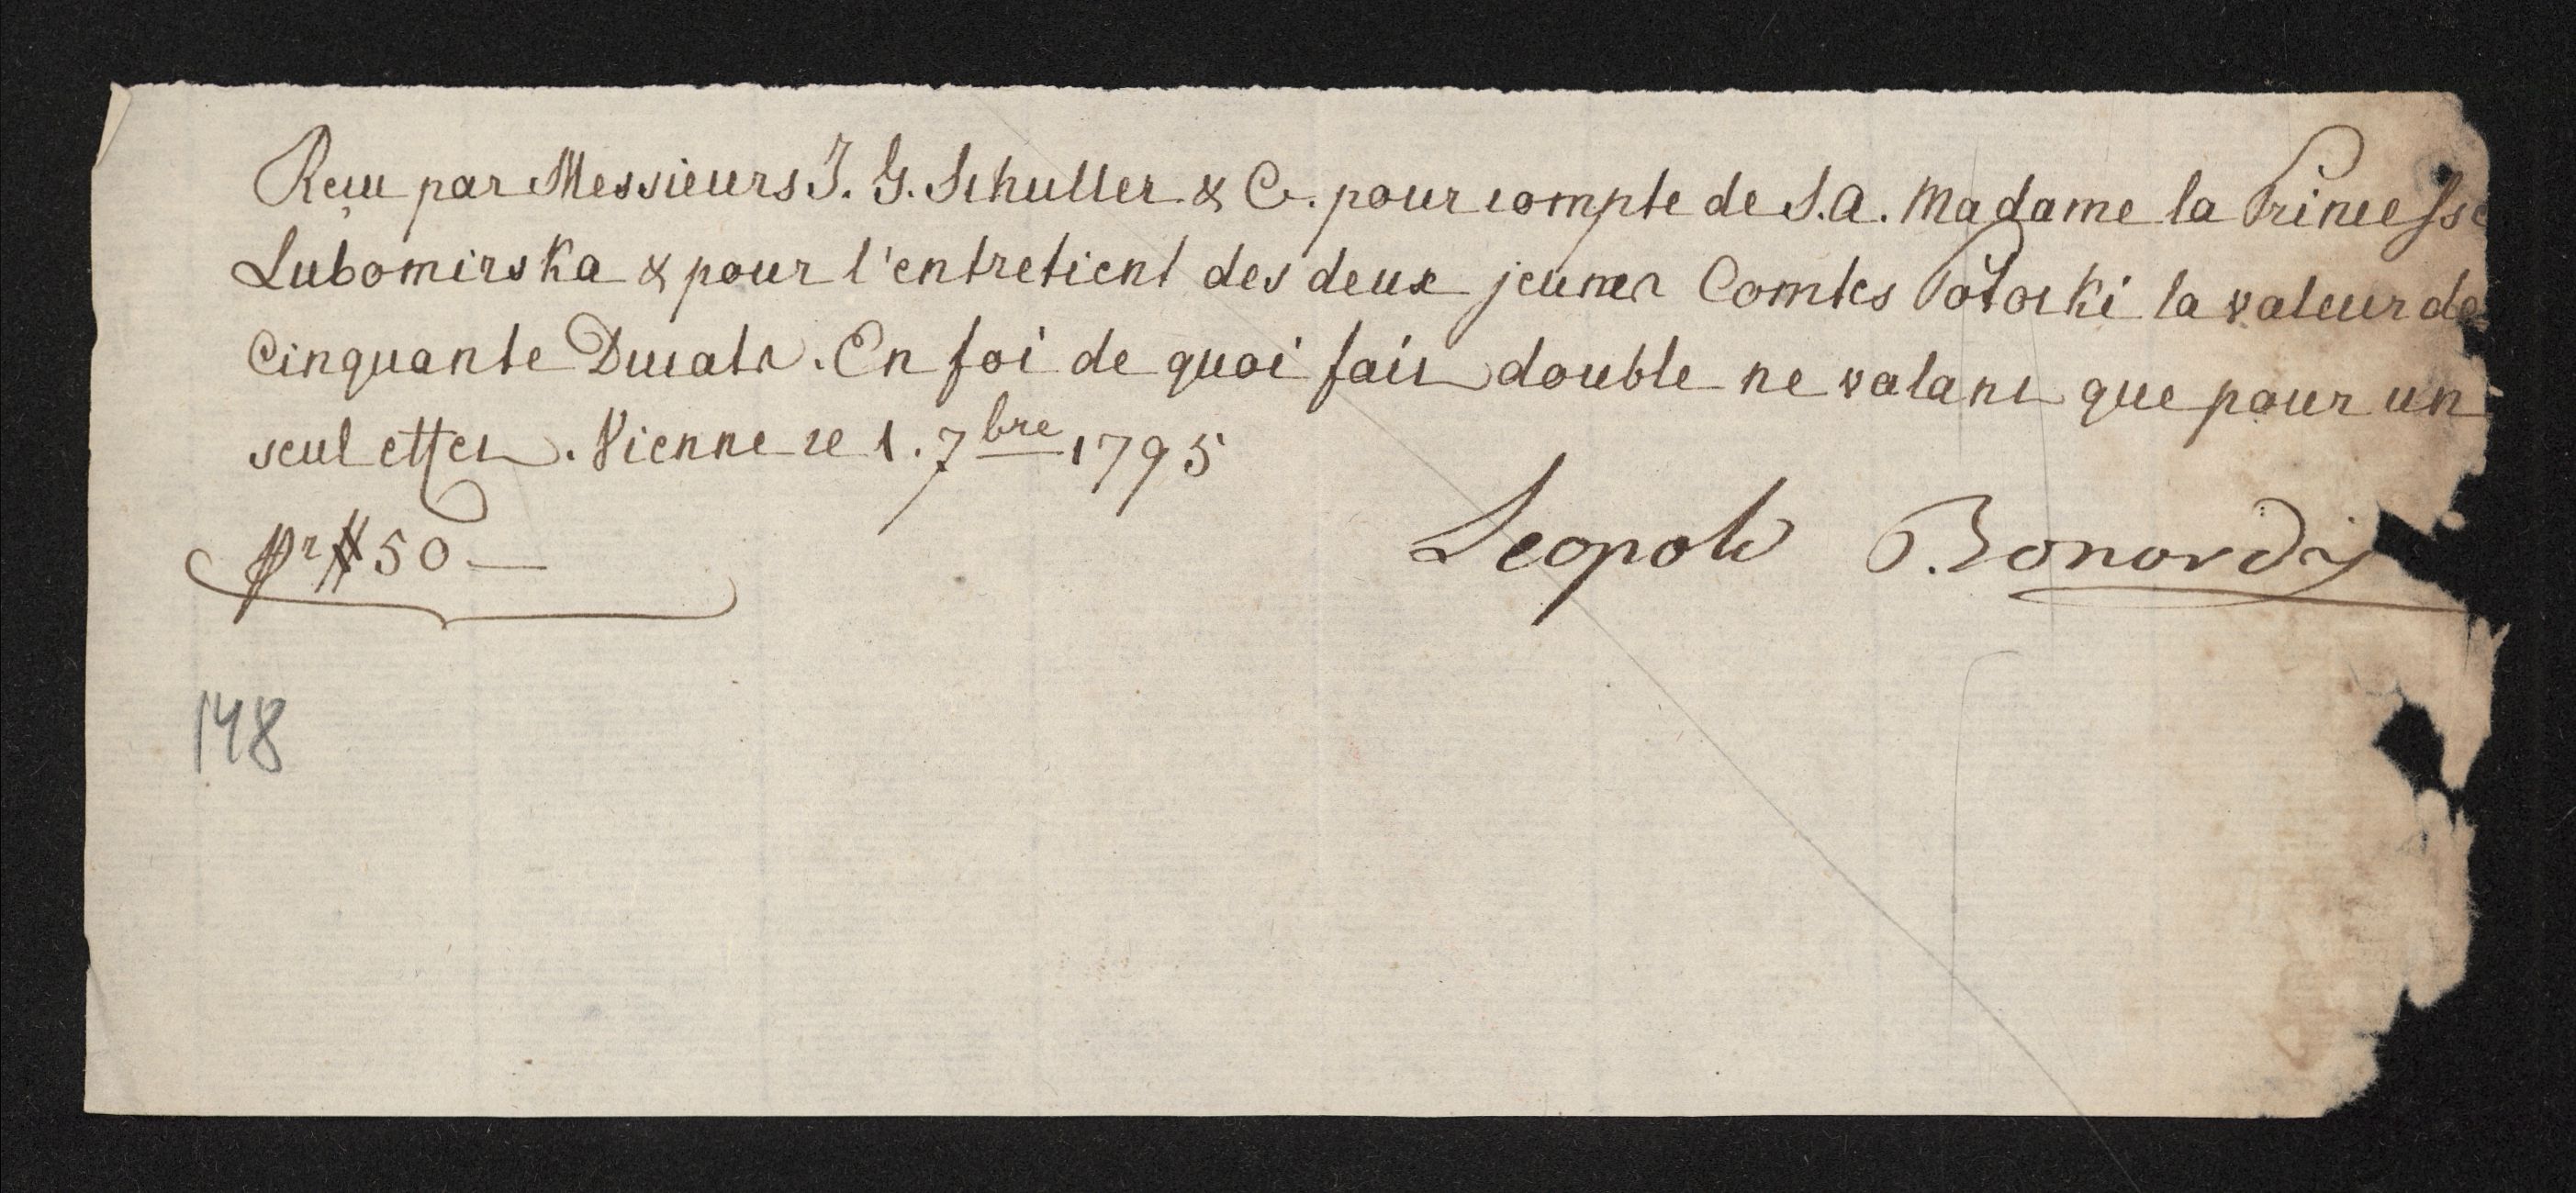 Reçu par Messieurs J. G. Schuller & C. pour compte de S.A. Madame la Princesse
Lubomirska & pour l'entretient des deux jeunes Comtes Potocki la valeur de
Cinquante Ducats. En foi de quoi fait double ne valant que pour un
seul effet. Vienne ce 1. 7bre 1795
pr # 50 —
Leopold Bonordi
148